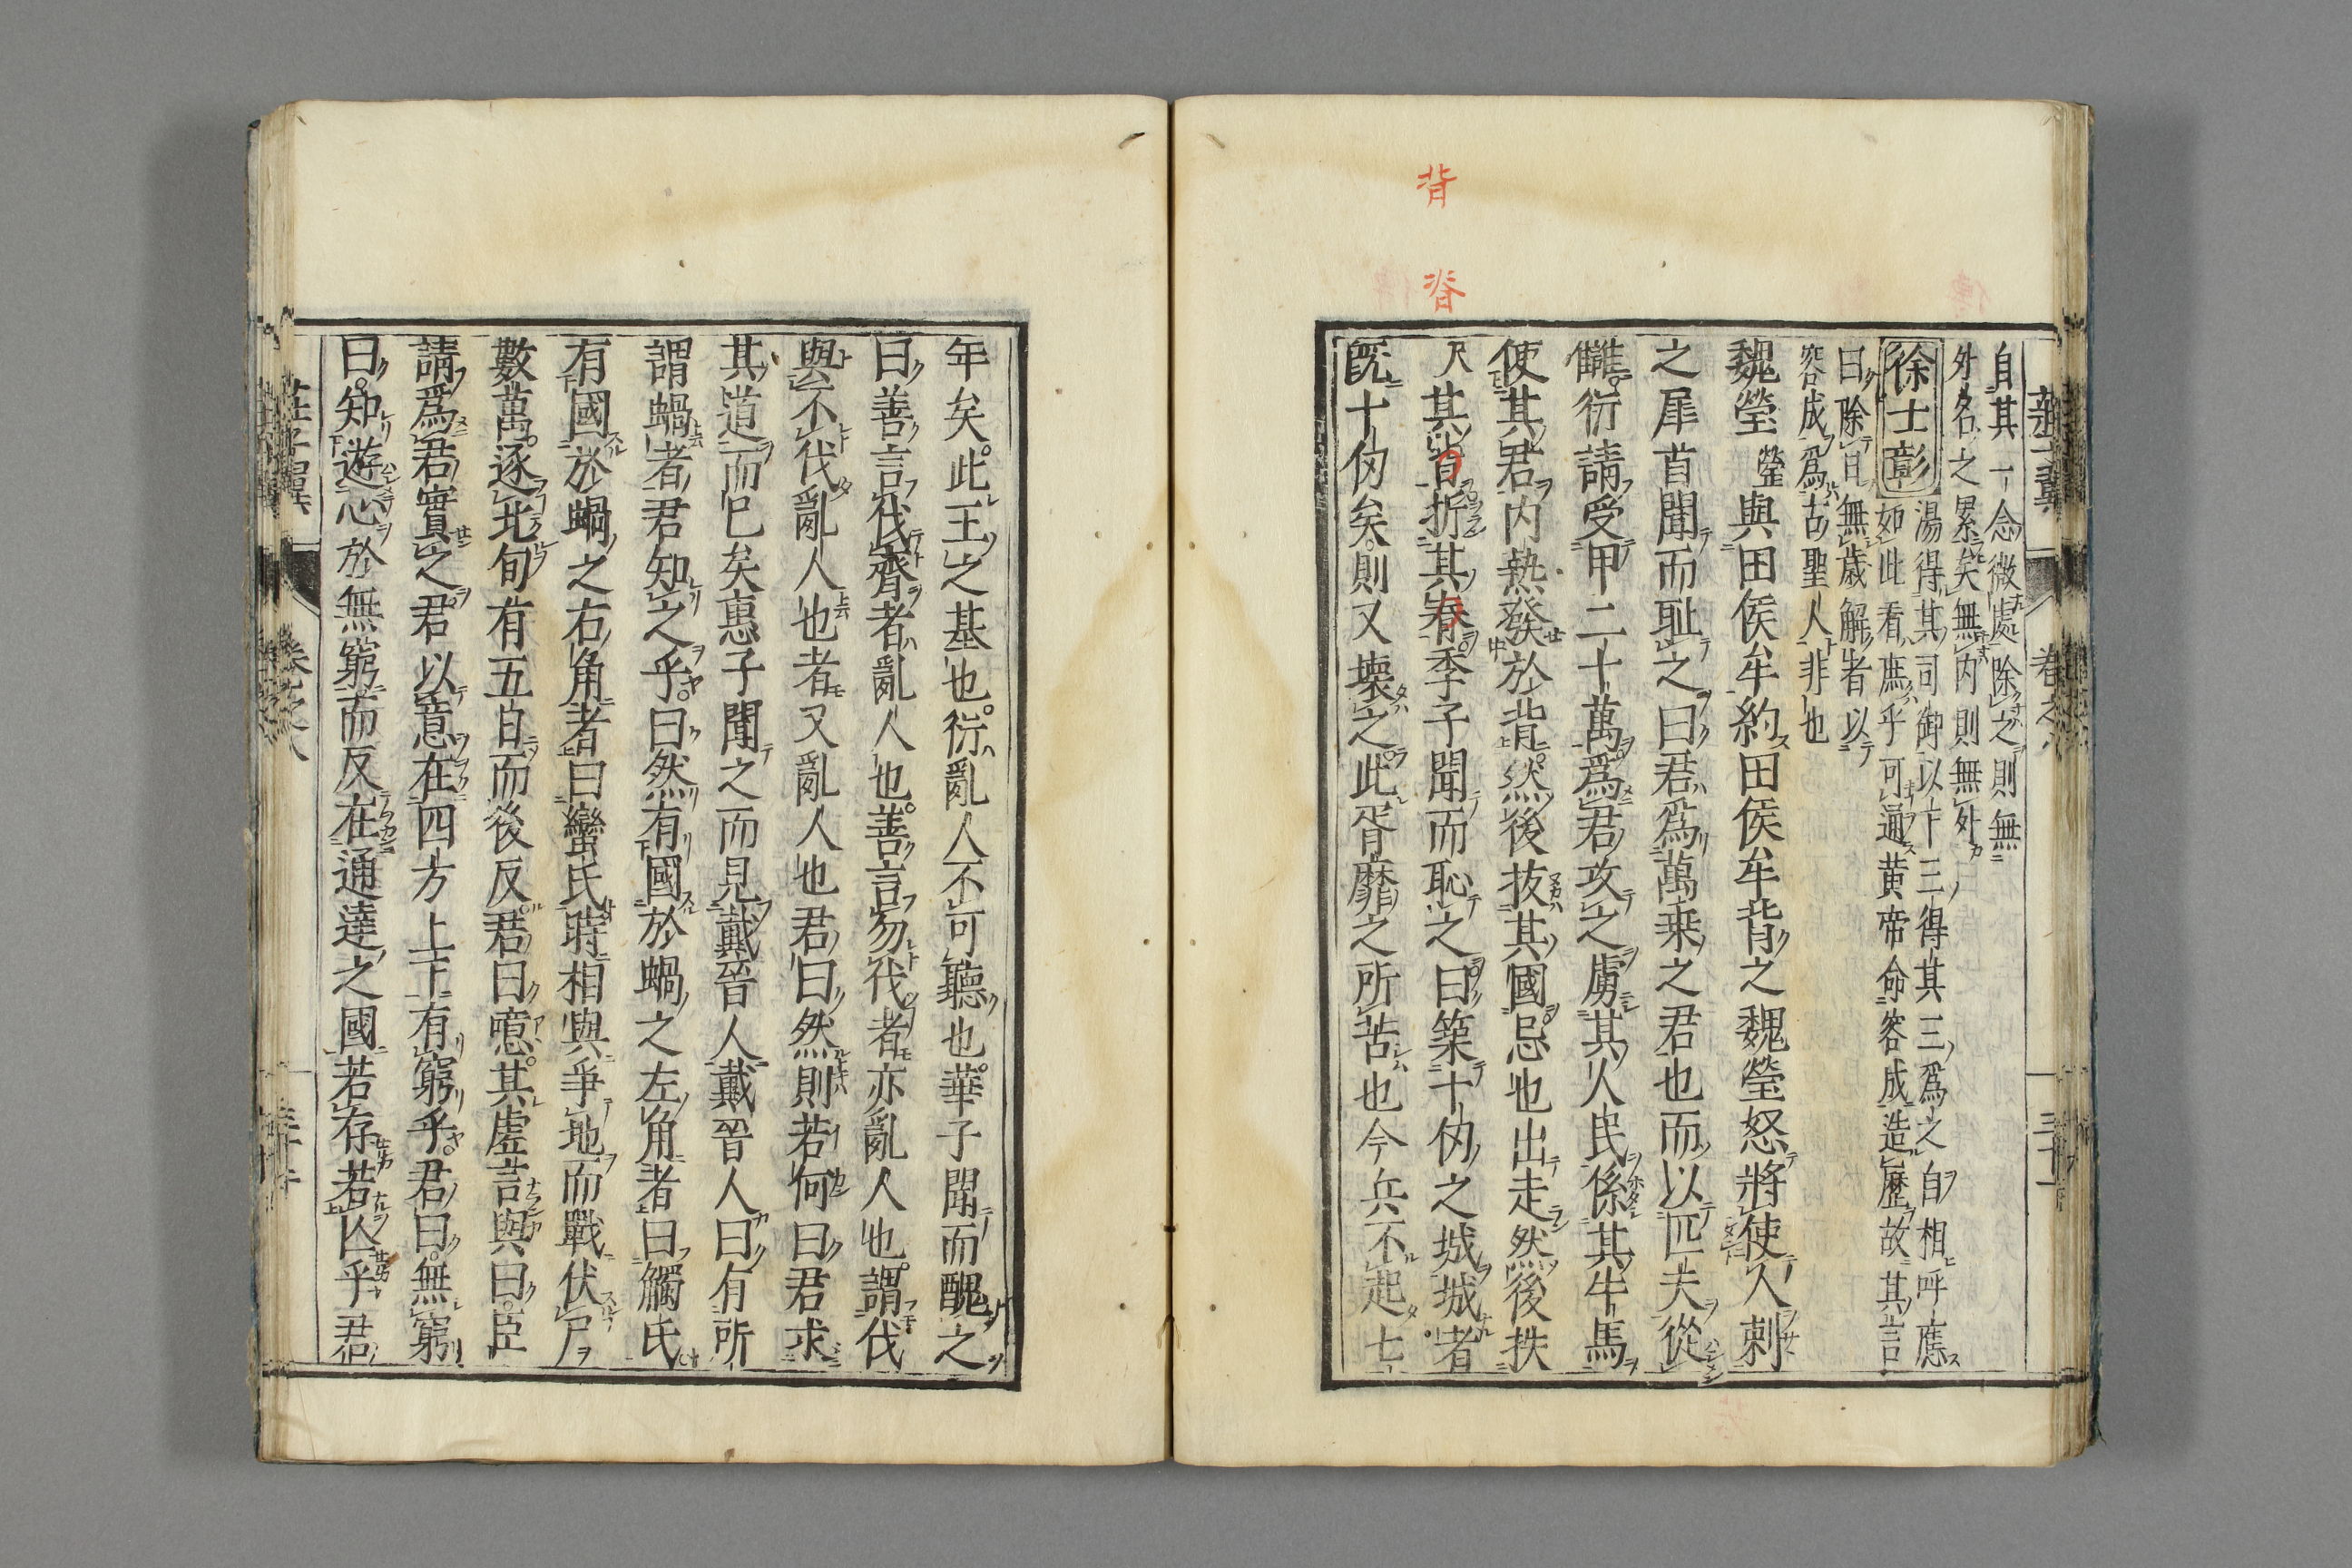 背
脊
卷之八
自其一念微處除之則無
外名之累矣無内則無外
徐士彰
湯得其司御以下三得其三爲之自相呼應
如此看庶乎可通黄帝命容成造歷故其言
曰除日無歳觧者以
容成爲古聖人非也
魏瑩瑩與田侯牟約田侯牟背之魏瑩怒將使人刺
之犀首聞而耻之曰君爲萬乘之君也而以匹夫從
讎衍請受甲二十萬爲君攻之虜其人民係其牛馬
使其君内熱發於背然後抜其國忌也出走然後抶
其背折其脊季子聞而恥之曰築十仞之城城者
既十仞矣則又壊之此胥靡之所苦也今兵不起七
年矣此王之基也衍亂人不可聽也華子聞而醜之
曰善言伐齊者亂人也善言勿伐者亦亂人也謂伐
與不伐亂人也者又亂人也君曰然則若何曰君求
其道而已矣惠子聞之而見戴晉人戴晉人曰有所
謂蝸者君知之乎曰然有國於蝸之左角者曰觸氏
有國於蝸之右角者曰蠻氏時相與爭地而戰伏尸
數萬逐北旬有五日而後反君曰噫其虚言與曰臣
請爲君實之君以意在四方上下有窮乎君曰無窮
曰知遊心於無窮而反在通達之國若存若亾乎君
卷之八